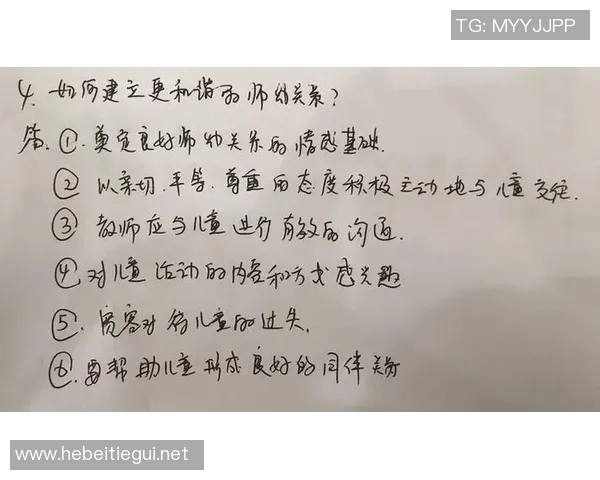 TG: MYYJJPP
4. 如何建立更和谐的师幼关系?
答. ①. 奠定良好师幼关系的情感基础.
② 以亲切.平等.尊重的态度积极主动地与儿童交往.
③ 教师应与儿童进行有效的沟通.
④ 对儿童活动的内容和方式感兴趣
⑤. 宽容对待儿童的过失.
⑥. 要帮助儿童形成良好的同伴关系
www.hebeitiegui.net